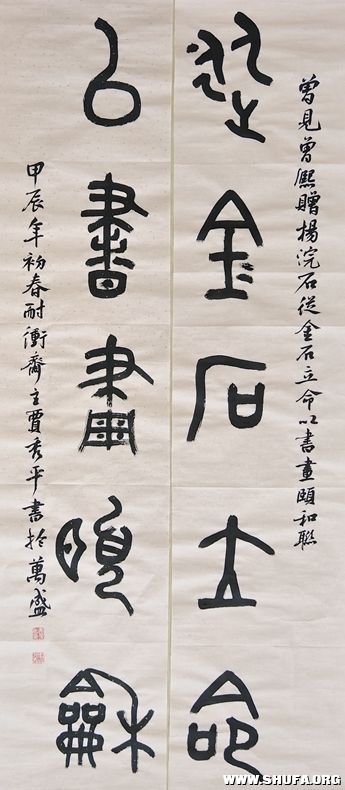 曾見曾熙贈楊浣石從金石立命以書畫頤和聯
從金石立命
以書畫頤龢
甲辰年初春耐衝齋主賈秀平書於萬盛
WWW.SHUFA.ORG